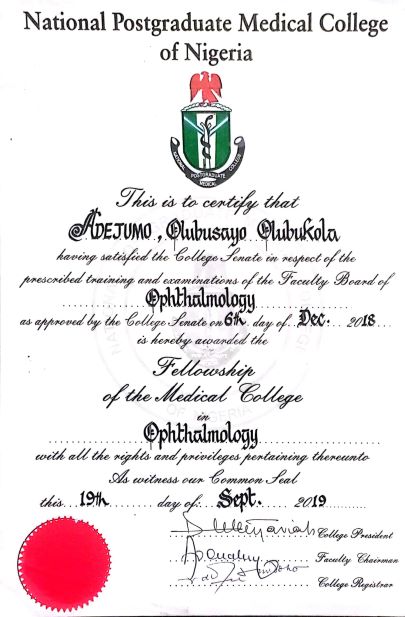 National Postgraduate Medical College
of Nigeria
NATIONAL POSTGRADUATE MEDICAL COLLEGE
This is to certify that
ADEJUMO, Olubusayo Olubukola
having satisfied the College Senate in respect of the
prescribed training and examinations of the Faculty Board of
Ophthalmology
as approved by the College Senate on 6th day of Dec. 2018
is hereby awarded the
Fellowship
of the Medical College
in
Ophthalmology
with all the rights and privileges pertaining thereunto
As witness our Common Seal
this 19th day of Sept. 2019
College President
Faculty Chairman
College Registrar